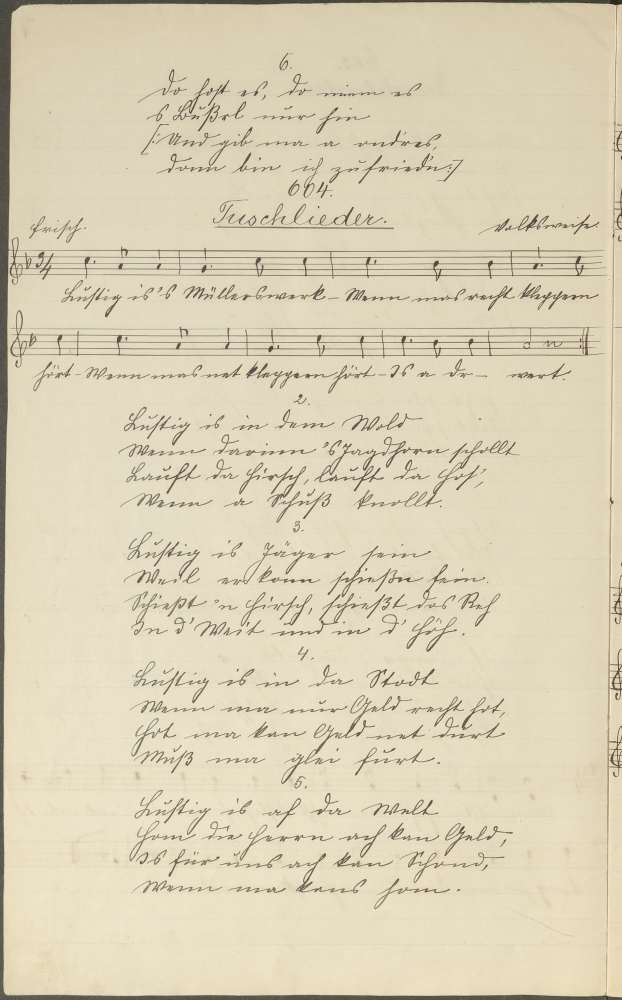 6.
Do host es, do nimm es
's Bußerl nur hin
[: Und gib ma a ondres,
donn bin ich zufriedn :]
664.
Tuschlieder.
Frisch. Volksweise.
3/4
Lustig is's Müllerswerk – Wenn mas recht kleppern
hört – Wenn mas net kleppern hört – Is a Dr– wert.
2.
Lustig is in dem Wold
Wenn darinn 's Jagdhorn schollt
Lauft da Hirsch, lauft da Hos',
Wenn a Schuß knollt.
3.
Lustig is Jäger sein
Weil er konn schießn fein.
Schießt 'n Hirsch, schießt das Reh
In d' Weit und in d' Höh.
4.
Lustig is in da Stodt
Wenn ma nur Geld recht hot,
Hot ma kan Geld net durt
Muß ma glei furt.
5.
Lustig is af da Welt
Hom die Herrn ach kan Geld,
Is für uns ach kan Schond,
Wenn ma kans hom.